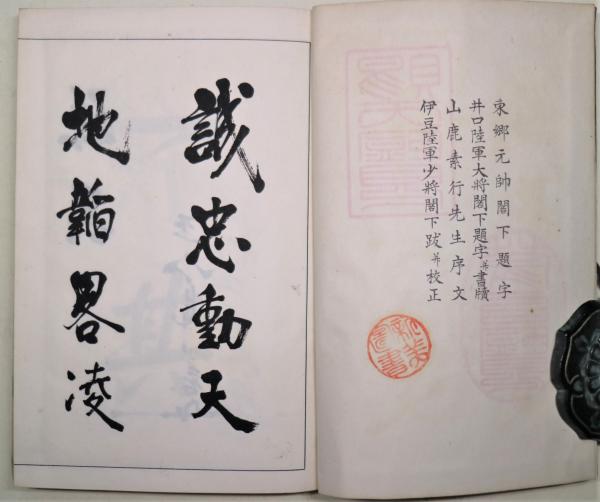 東郷元帥閣下題字
井口陸軍大将閣下題字并書牘
山鹿素行先生序文
伊豆陸軍少将閣下跋并校正
誠忠動天
地韜畧凌